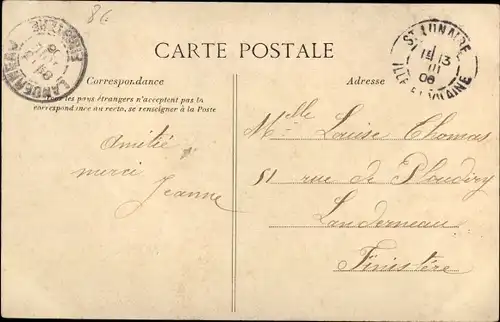 86
CARTE POSTALE
Correspondance
Tous les pays étrangers n'acceptent pas la
correspondance au recto, se renseigner à la Poste
Amitié
merci
Jeanne
Adresse
Melle Louise Thomas
51 rue de Ploudiry
Landerneau
Finistère
ST LUNAIRE
13
III
08
ILLE ET VILAINE
LANDERNEAU
FINISTERE